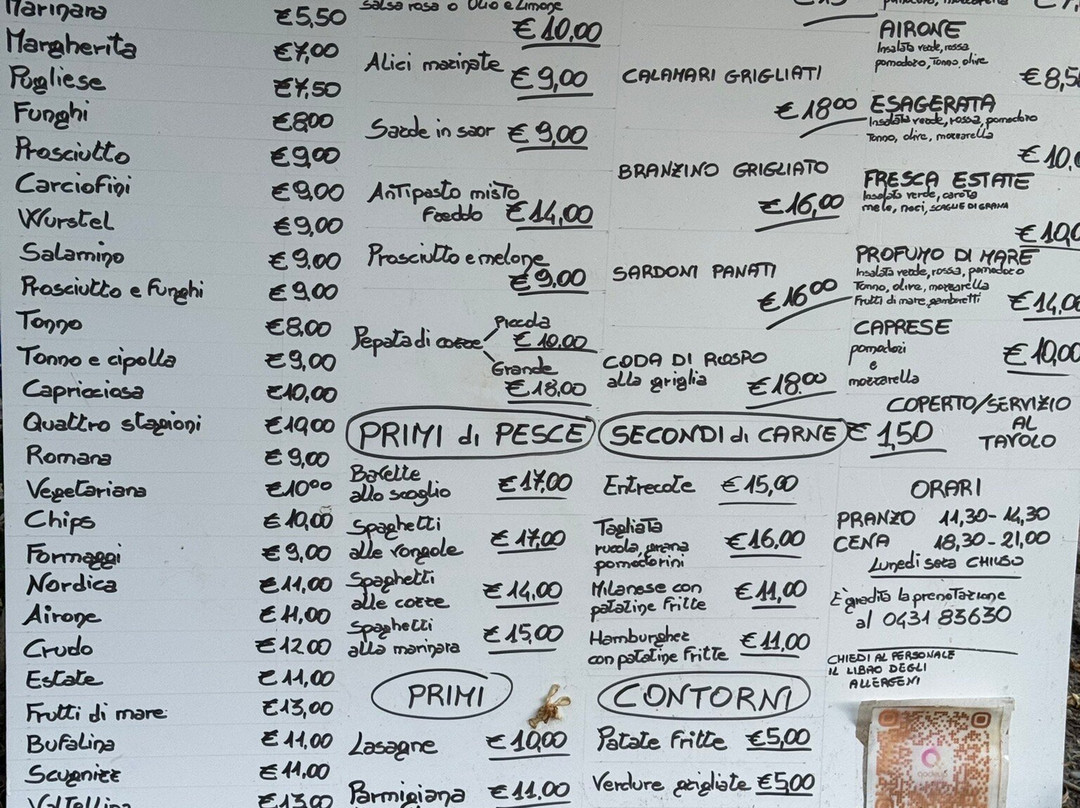 Marinara €5,50
Margherita €7,00
Pugliese €7,50
Funghi €8,00
Prosciutto €9,00
Carciofini €9,00
Wurstel €9,00
Salamino €9,00
Prosciutto e funghi €9,00
Tonno €8,00
Tonno e cipolla €9,00
Capricciosa €10,00
Quattro stagioni €10,00
Romana €9,00
Vegetariana €10,00
Chips €10,00
Formaggi €9,00
Nordica €11,00
Airone €11,00
Crudo €12,00
Estate €11,00
Frutti di mare €13,00
Bufalina €11,00
Scugnizz €11,00
Valtellina €13,00
salsa rosa o olio e limone
€10,00
Alici marinate €9,00
Sarde in saor €9,00
Antipasto misto
freddo €14,00
Prosciutto e melone
€9,00
Piccola
Pepata di cozze €10,00
Grande
€18,00
PRIMI di PESCE
Bavette
allo scoglio €17,00
Spaghetti
alle vongole €17,00
Spaghetti
alle cozze €14,00
Spaghetti
alla marinara €15,00
PRIMI
Lasagne €10,00
Parmigiana €11,00
CALAMARI GRIGLIATI
€18,00
BRANZINO GRIGLIATO
€16,00
SARDONI PANATI
€16,00
CODA DI ROSPO
alla griglia €18,00
SECONDI di CARNE
Entrecote €15,00
Tagliata
rucola, grana
pomodorini €16,00
Milanese con
patatine fritte €11,00
Hamburgher
con patatine fritte €11,00
CONTORNI
Patate fritte €5,00
Verdure grigliate €5,00
AIRONE
Insalata verde, rossa
pomodoro, tonno, olive
€8,5
ESAGERATA
Insalata verde, rossa, pomodoro
Tonno, olive, mozzarella
€10,
FRESCA ESTATE
Insalata verde, carota
mele, noci, SCAGLIE DI GRANA
€10,0
PROFUMO DI MARE
Insalata verde, rossa, pomodoro
Tonno, olive, mozzarella
Frutti di mare, gamberetti €14,0
CAPRESE
pomodori
e
mozzarella
€10,00
COPERTO/SERVIZIO
AL
TAVOLO
€1,50
ORARI
PRANZO 11,30-14,30
CENA 18,30-21,00
Lunedì sera CHIUSO
È gradita la prenotazione
al 0431 83630
CHIEDI AL PERSONALE
IL LIBRO DEGLI
ALLERGENI